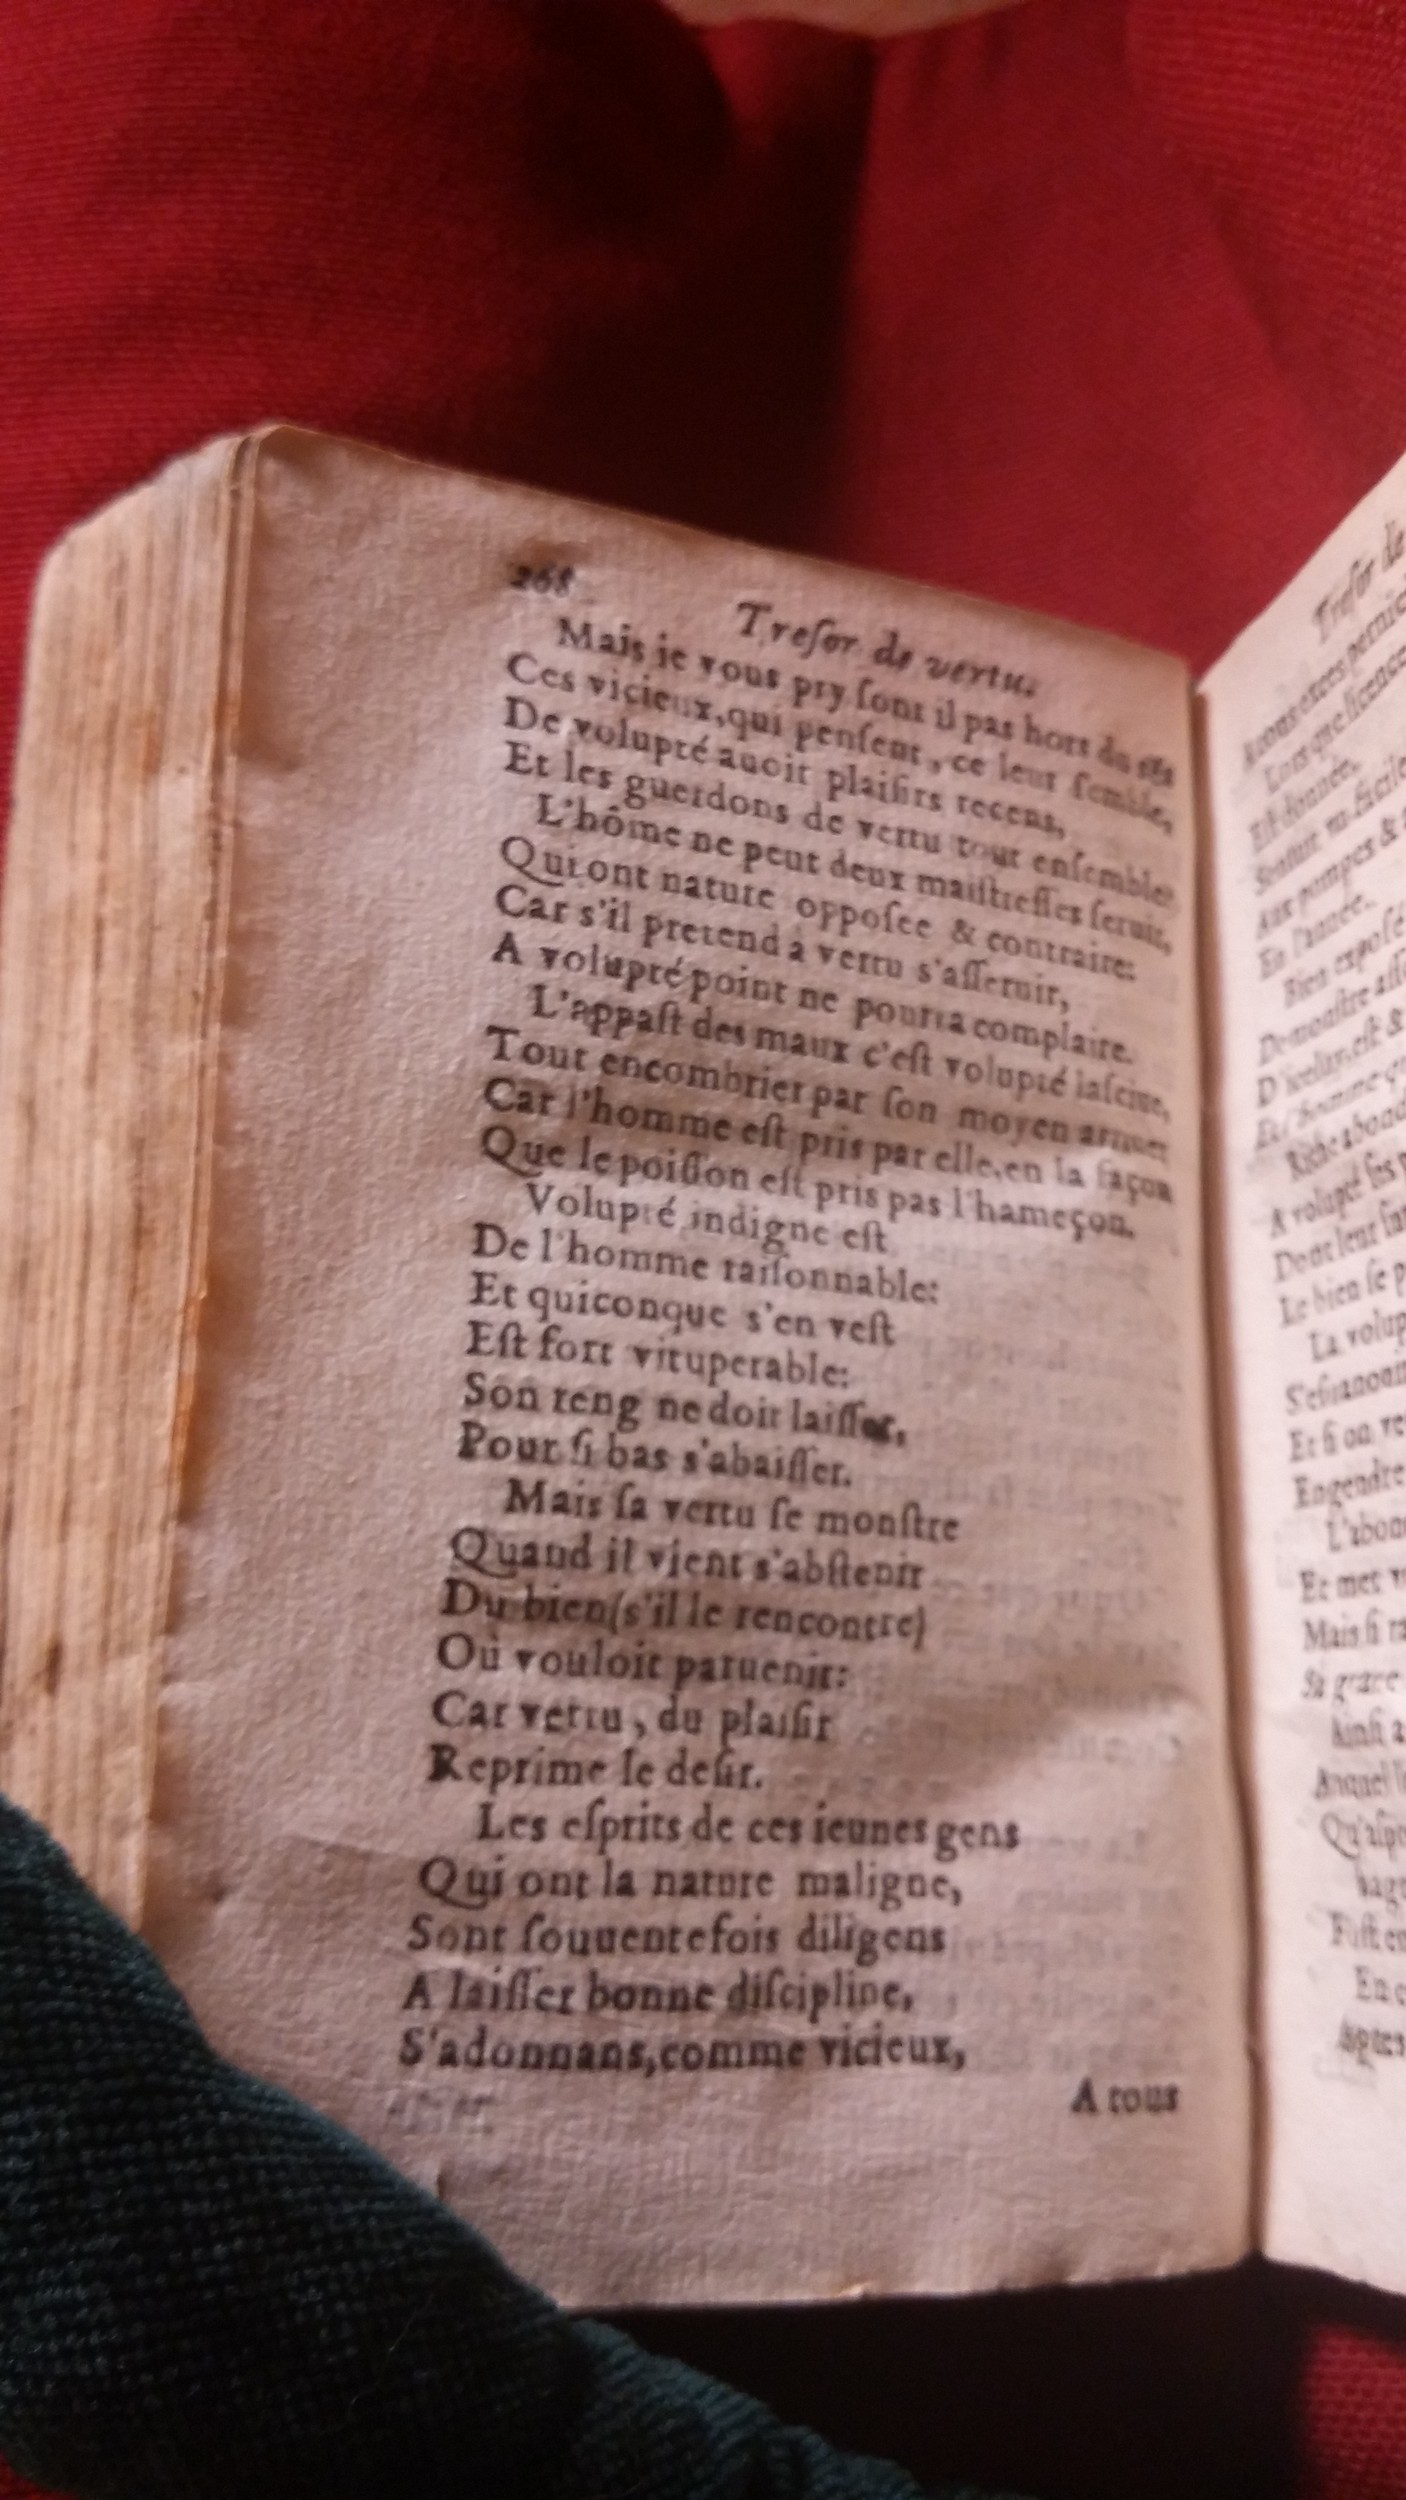 268
Treſor de vertu.
Mais ie vous pry ſont il pas hors du ſés
Ces vicieux, qui penſent, ce leur ſemble,
De volupté auoir plaiſirs recens,
Et les guerdons de vertu tout enſemble?
L'hôme ne peut deux maiſtreſſes ſeruir,
Qui ont nature oppoſee & contraire:
Car s'il pretend à vertu s'aſſeruir,
A volupté point ne pourra complaire.
L'appaſt des maux c'eſt volupté laſciue,
Tout encombrier par ſon moyen
Car l'homme eſt pris par elle, en la façon
Que le poiſſon eſt pris pas l'hameçon.
Volupté indigne eſt
De l'homme raiſonnable:
Et quiconque s'en veſt
Eſt fort vituperable:
Son reng ne doit laiſſer,
Pour ſi bas s'abaiſſer.
Mais ſa vertu ſe monſtre
Quand il vient s'abſtenir
Du bien (s'il le rencontre)
Où vouloit paruenir:
Car vertu, du plaiſir
Reprime le deſir.
Les eſprits de ces ieunes gens
Qui ont la nature maligne,
Sont ſouuentefois diligens
A laiſſer bonne diſcipline,
S'adonnans, comme vicieux,
A tous
Treſor de
Lors que licence
Eſt donnée.
Aux pompes &
En l'année.
Bien expoſé
Demonſtre
D'iceluy, eſt &
Et l'homme
Riche
A volupté ſes
Dont leur
Le bien ſe
La volup
Et ſi on
Engendre
L'abon
Et met
Mais ſi
Sa grace
Ainſi
Auquel